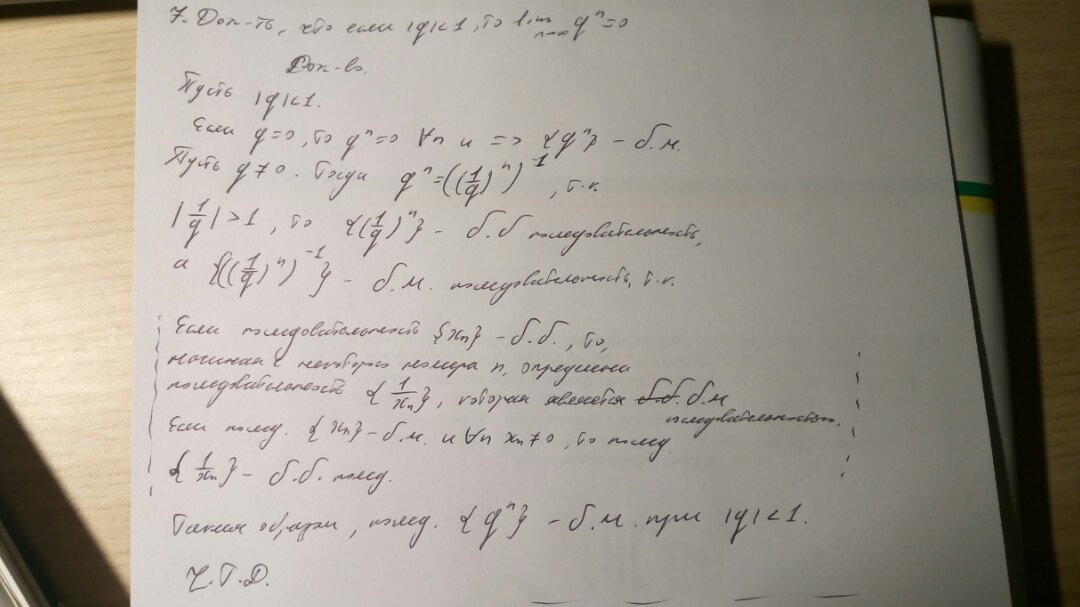 7. Док-ть, что если |q|<1, то lim n→∞ qⁿ=0
Док-во.
Пусть |q|<1.
Если q=0, то qⁿ=0 ∀n и => {qⁿ} - б.м.
Пусть q≠0. Тогда qⁿ=((1/q)ⁿ)⁻¹, т.к.
|1/q|>1, то {(1/q)ⁿ} - б.б последовательность,
а {((1/q)ⁿ)⁻¹} - б.м. последовательность, т.к.
Если последовательность {xn} - б.б., то,
начиная с некоторого номера n, определена
последовательность {1/xn}, которая является б.б. б.м
последовательностью.
Если послед. {xn} - б.м. и ∀n xn≠0, то послед
{1/xn} - б.б. послед.
Таким образом, послед. {qⁿ} - б.м. при |q|<1.
Ч.Т.Д.